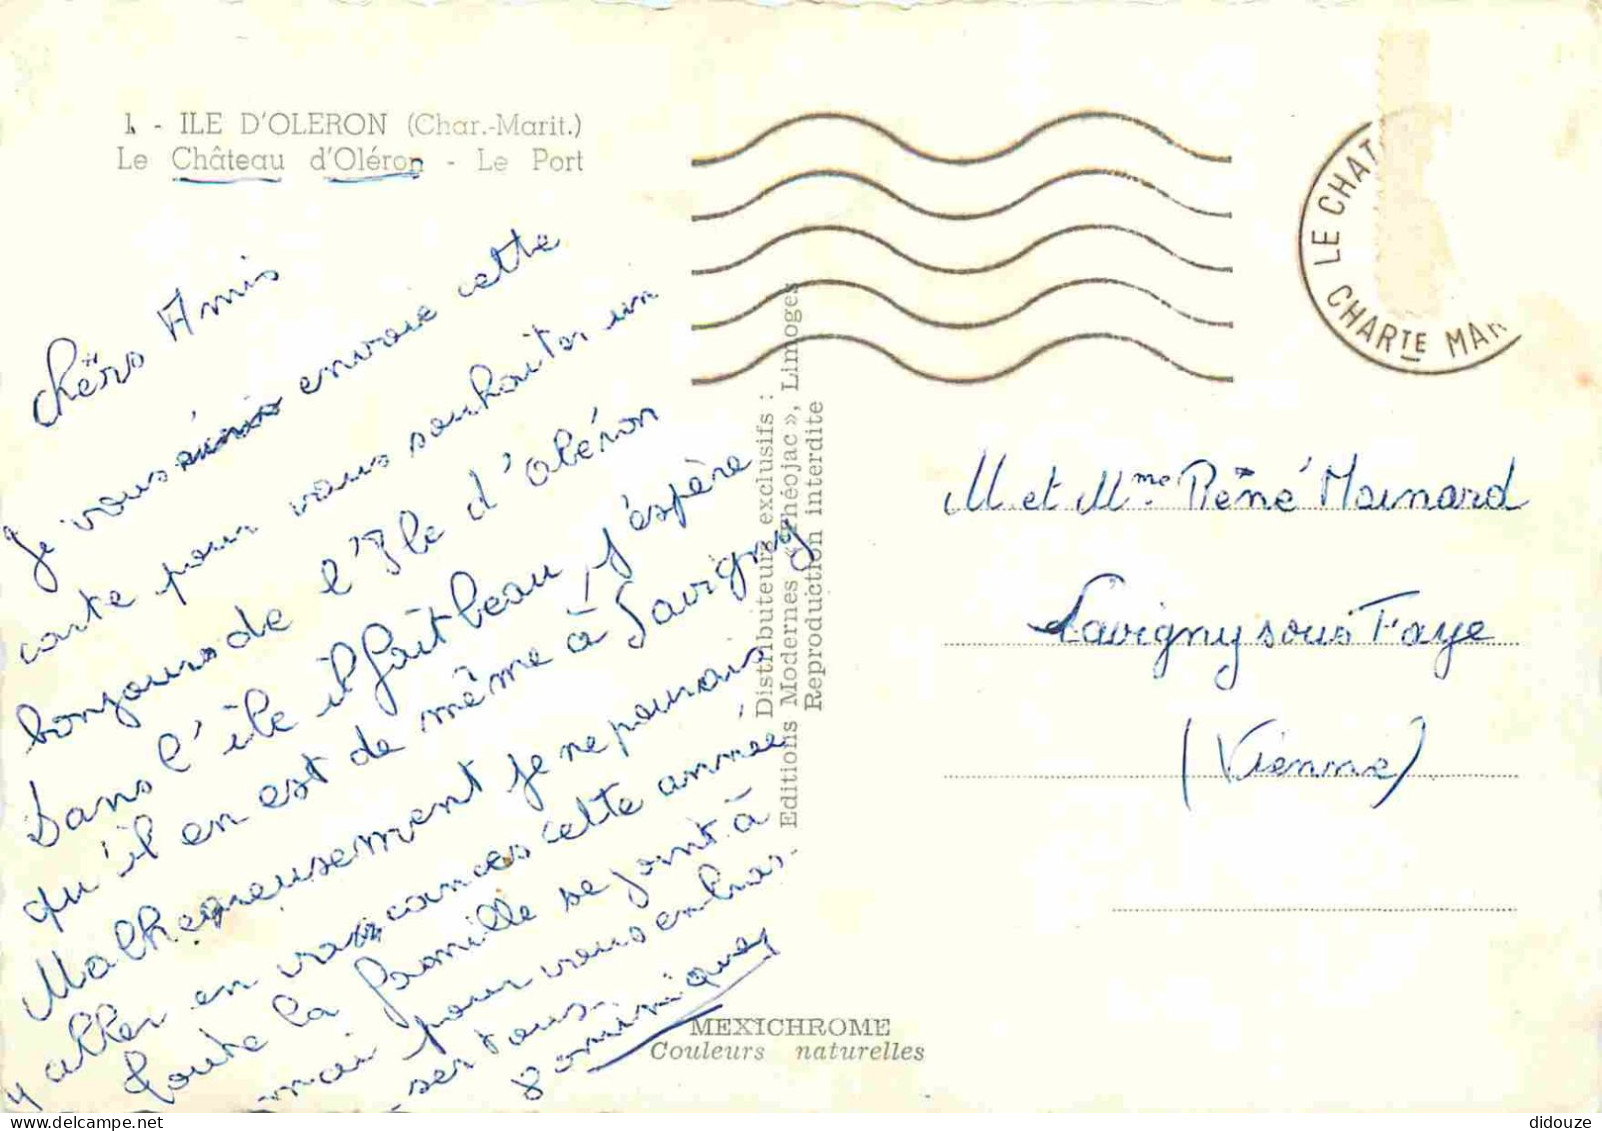 1. - ILE D'OLERON (Char.-Marit.)
Le Château d'Oléron - Le Port
chërs Amis
Je vous envoie cette
carte pour vous souhaiter un
bonjours de l'Ile d'oléron
Dans l'île il faît beau, j'éspère
qu'il en est de même à Savigny
Malheureusement je ne pourrais
y aller en vacances cette année
toute la famille se joint à
moi pour vous embras-
ser tous.
Dominique
Distributeurs exclusifs :
Editions Modernes « Théojac », Limoges
Reproduction interdite
MEXICHROME
Couleurs naturelles
LE CHAT
CHARTE MAR
M et Mme Réné Mainard
Savigny sous Faye
(Vienne)
didouze